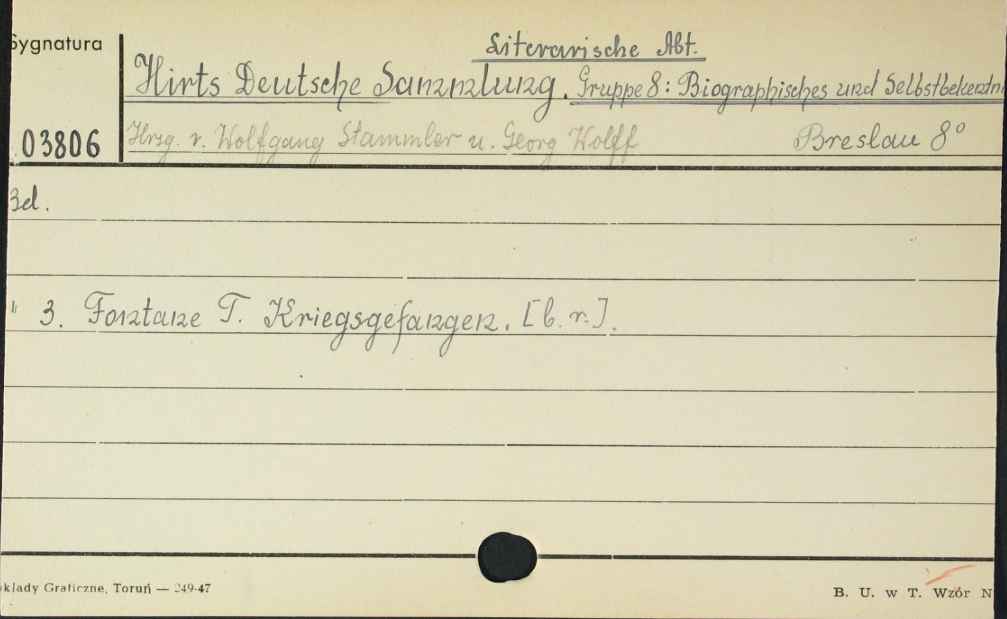 Sygnatura
Literarische Abt.
Hirts Deutsche Sammlung. Gruppe 8: Biographisches und Selbstbekenntn
03806
Hrsg. v. Wolfgang Stammler u. Georg Wolff Breslau 8°
Bd.
" 3. Fontane T. Kriegsgefangen. [b. r.].
kłady Graficzne, Toruń — 249-47
B. U. w T. Wzór N